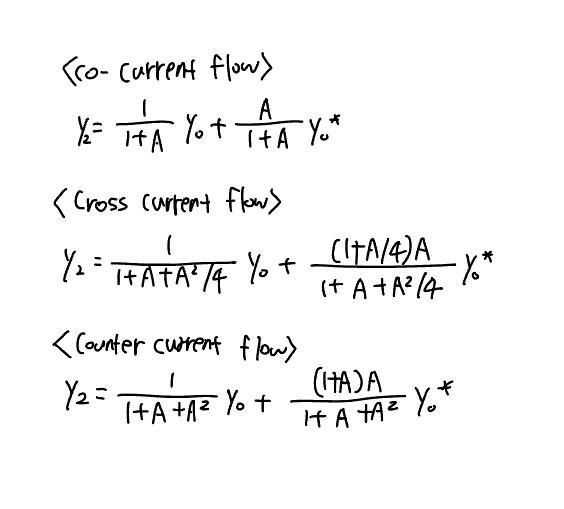 <co-current flow>
Y₂= 1/(1+A) Y₀ + A/(1+A) Y₀*
<Cross current flow>
Y₂ = 1/(1+A+A²/4) Y₀ + (1+A/4)A/(1+A+A²/4) Y₀*
<Counter current flow>
Y₂ = 1/(1+A+A²) Y₀ + (1+A)A/(1+A+A²) Y₀*